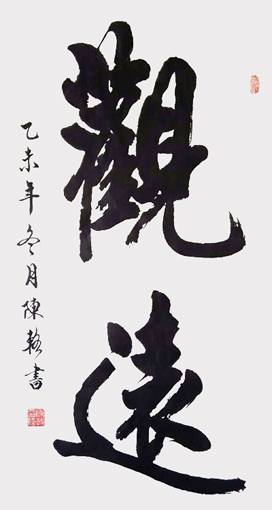 觀遠
乙未年冬月陳輅書